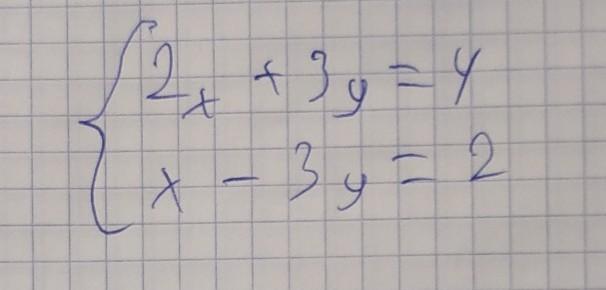 2x + 3y = 4
x - 3y = 2